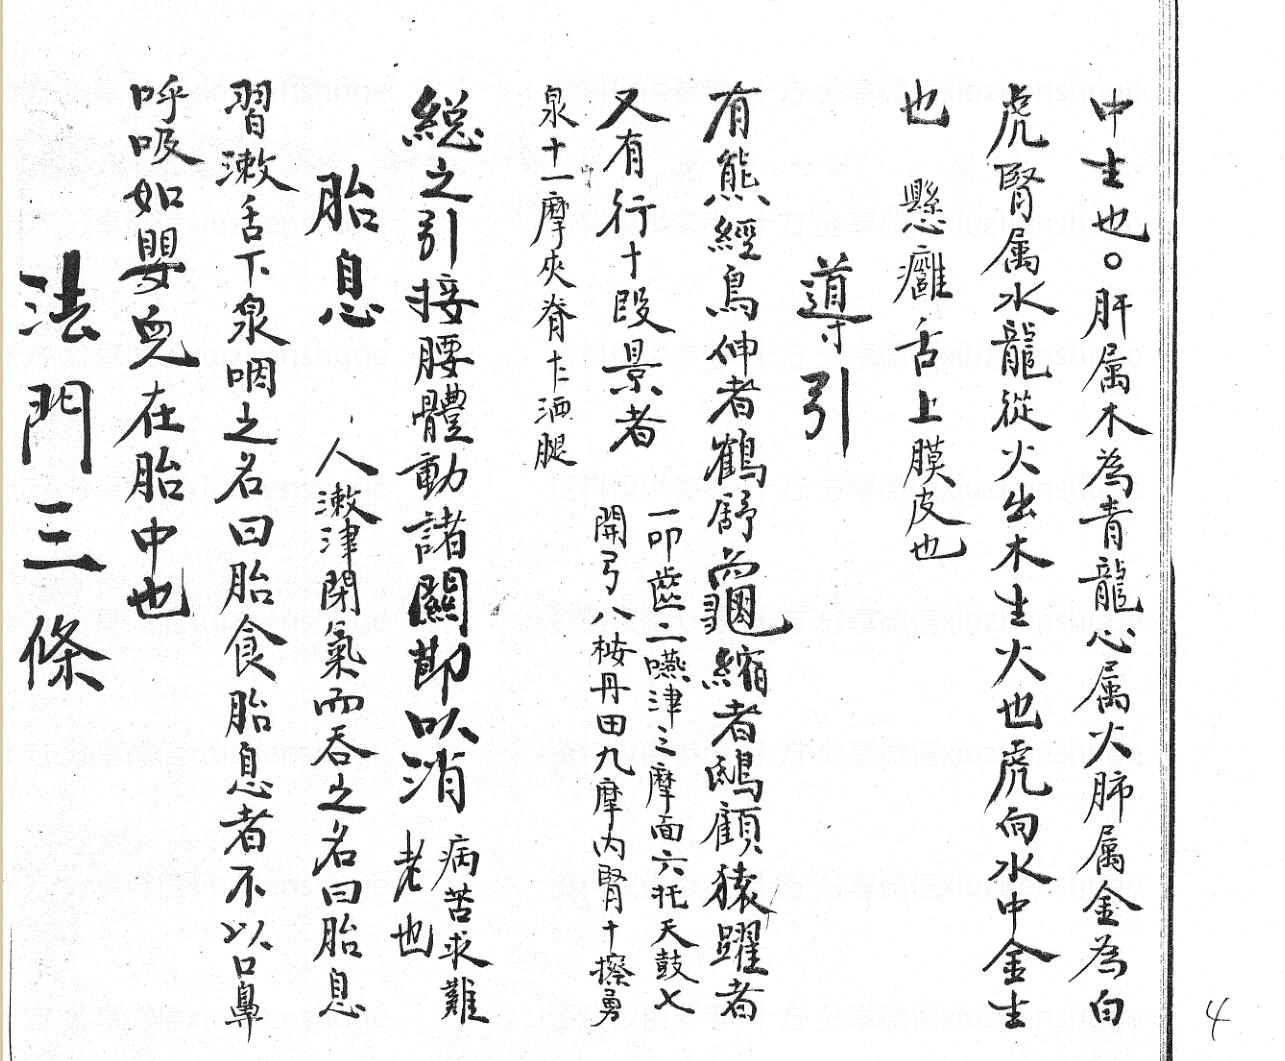 中生也。肝属木為青龍心属火肺属金為白
虎腎属水龍從火出木生火也虎向水中金生
也 懸癰舌上膜皮也
導引
有熊經鳥伸者鶴舒龜縮者鴟顧猿躍者
又有行十段景者
一叩齒二嚥津三摩面六托天鼓七
開弓八桉丹田九摩內腎十擦勇
泉十一摩夾脊十二洒腿
総之引接腰體動諸關節以消
病苦求難
老也
胎息
人漱津閉氣而吞之名曰胎息
習漱舌下泉咽之名曰胎食胎息者不以口鼻
呼吸如嬰兒在胎中也
法門三條
4